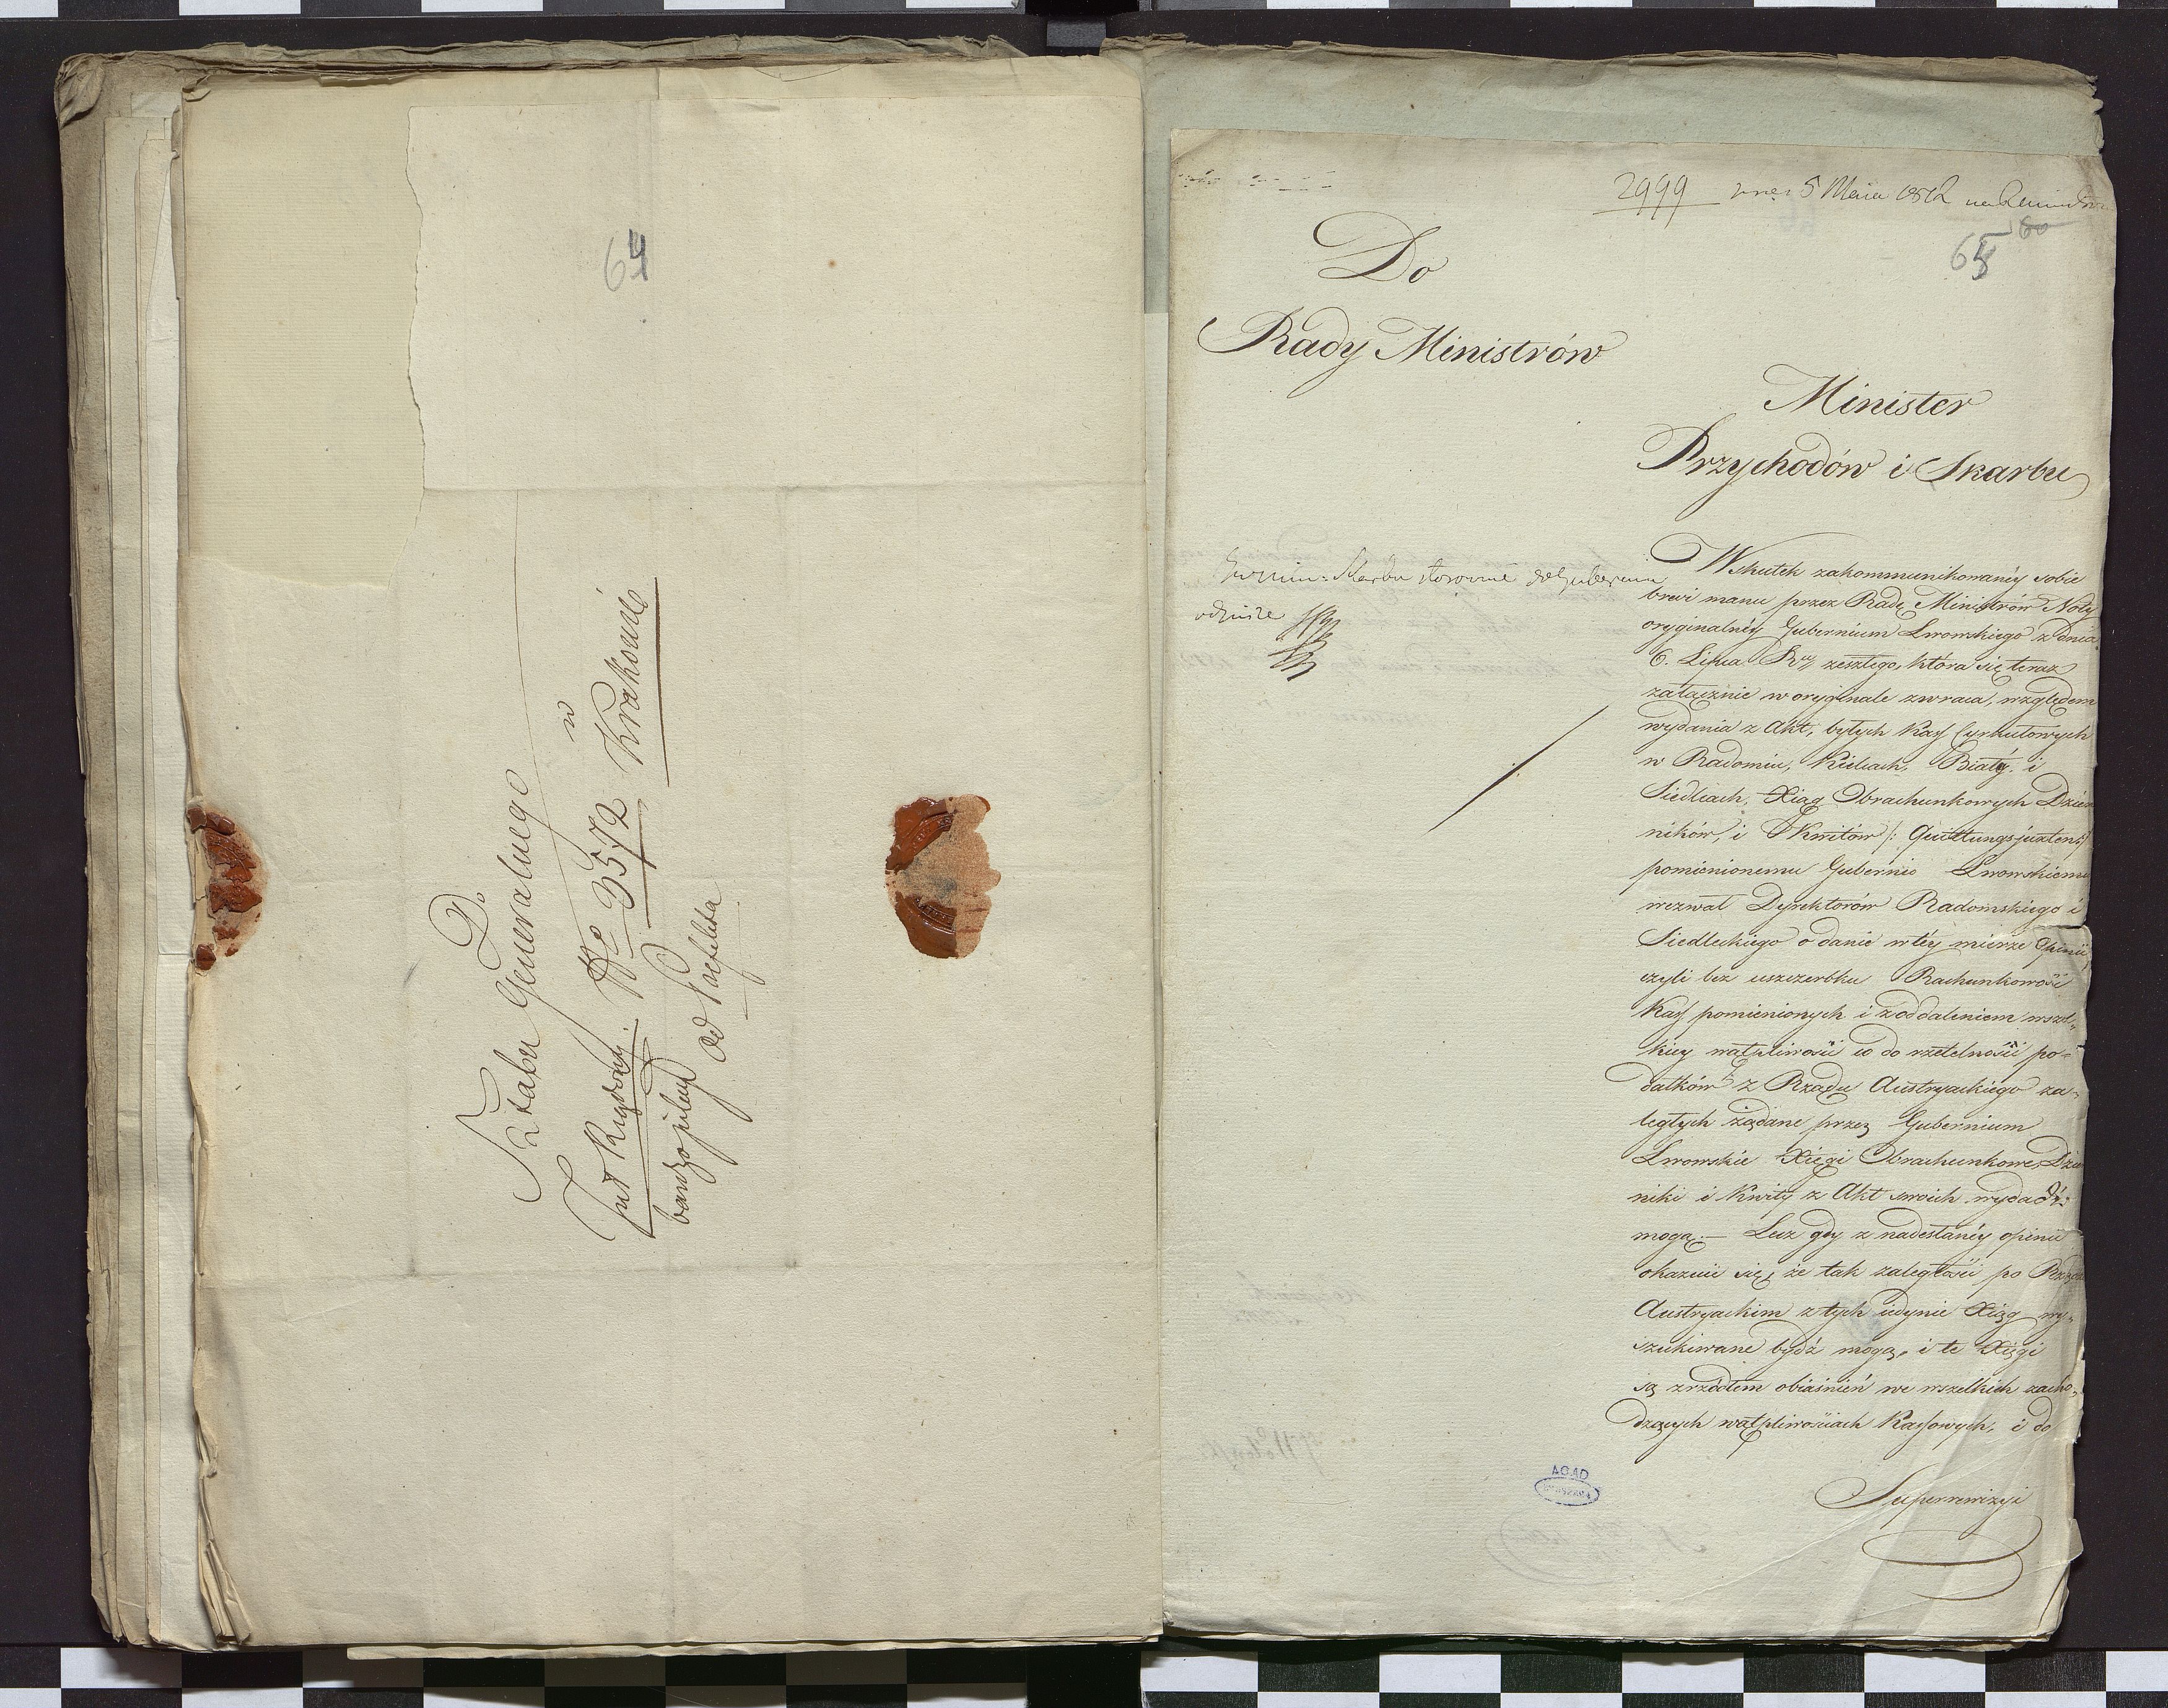 64
Do
Sztabu Generalnego
w
Int Rządowy. No 3572 Krakowie
bardzo pilny
od Prefekta
2999 5 Maia 1812
60
65
Do
Rady Ministrów
Minister
Przychodów i Skarbu
Skarbu stosownie do Gubernium
odpisze
Wskutek zakommunikowanéy sobie
brevi manu przez Radę Ministrów Noty
oryginalnéy Gubernium Lwowskiego z dnia
6. Lipca R. zeszłego, która się teraz
załącznie w oryginale zwraca, względem
wydania z Akt, byłych Kass Cyrkułowych
w Radomiu, Kielcach, Białéy i
Siedlcach, Xiąg Obrachunkowych Dzien
ników, i Kwitów /: Quittungsjuxten :/
pomienionemu Gubernio Lwowskiemu
wezwał Dyrektorów Radomskiego i
Siedleckiego o danie w téy mierze Opinii,
czyli bez uszczerbku Rachunkowości
Kass pomienionych i z oddaleniem wszel-
kiey wątpliwości co do rzetelności po-
datków z Rządu Austryackiego za-
ległych żądane przez Gubernium
Lwowskie Xięgi Obrachunkowe, Dzien
niki i Kwity z Akt swoich wydać
mogą. — Lecz gdy z nadesłanéy opinii
okazuie się, że tak zaległości po Rządzie
Austryackim z tych iedynie Xiąg wy-
szukiwane bydź mogą, i te Xięgi
są zrzódłem obiaśnień we wszelkich zacho-
dzących wątpliwościach Kassowych, i do
Superrewizyi
AGAD